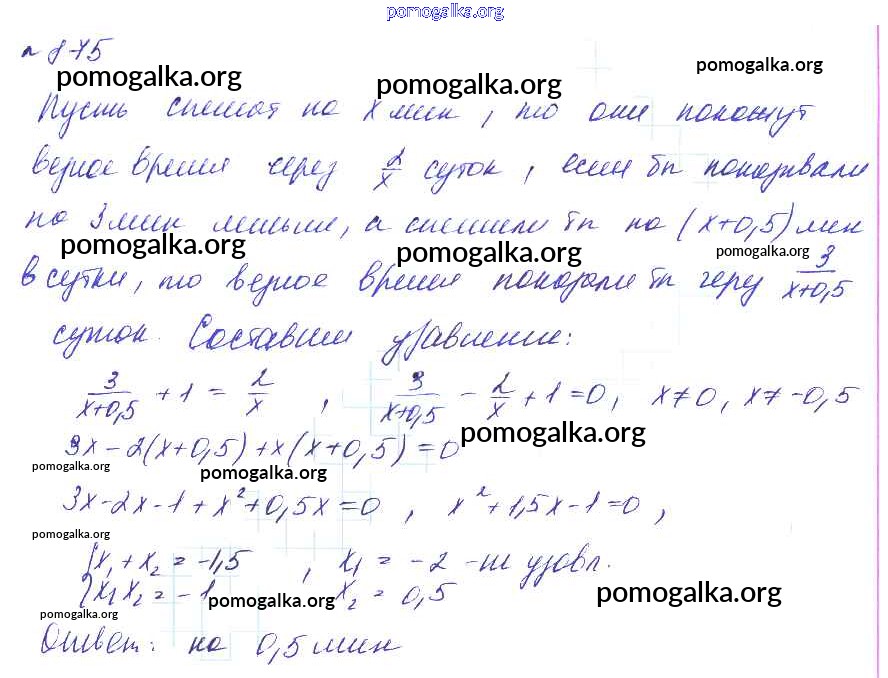 pomogalka.org
n 875
pomogalka.org pomogalka.org pomogalka.org
Пусть спешат на x мин, то они покажут
верное время через 2/x суток, если бы показывали
на 3 мин меньше, а спешили бы на (x+0,5) мин
pomogalka.org pomogalka.org pomogalka.org
в сутки, то верное время показали бы через 3/(x+0,5)
суток. Составим уравнение:
3/(x+0,5) + 1 = 2/x, 3/(x+0,5) - 2/x + 1 = 0, x≠0, x≠-0,5
pomogalka.org
3x - 2(x+0,5) + x(x+0,5) = 0
pomogalka.org pomogalka.org
3x - 2x - 1 + x² + 0,5x = 0, x² + 1,5x - 1 = 0,
pomogalka.org
{x₁ + x₂ = -1,5, x₁ = -2 - не удовл.
{x₁x₂ = -1 x₂ = 0,5
pomogalka.org pomogalka.org
pomogalka.org
Ответ: на 0,5 мин